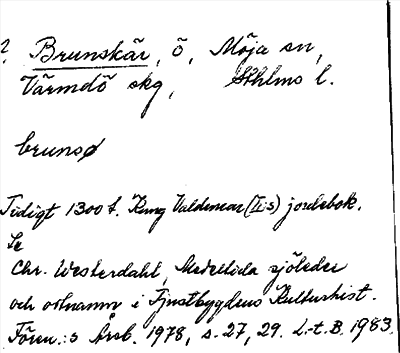 ?, Brunskär, ö, Möja sn,
Värmdö skg, Sthlms l.
brunsø
Tidigt 1300 t. Kung Valdemar (II:s) jordebok.
Se
Chr. Westerdahl, Medeltida sjöleder
och ortnamn i Tjustbygdens Kulturhist.
Fören.:s Årsb. 1978, s. 27, 29. L-t. B. 1983.